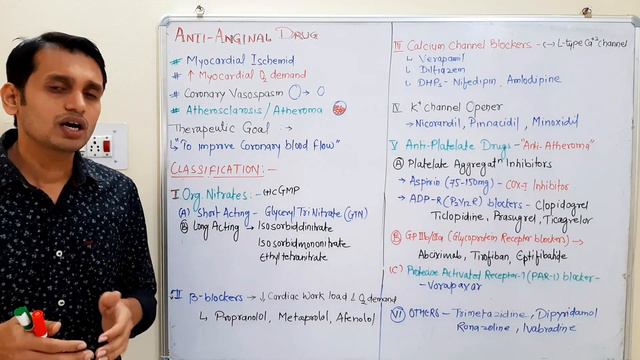 ANTI-ANGINAL DRUG
# Myocardial Ischemid
# ↑ Myocardial O2 demand
# Coronary Vasospasm → 0
# Atherosclarosis/Atheroma
Therapeutic Goal :→
↳ "To improve Coronary blood flow"
CLASSIFICATION:-
I Org. Nitrates - cGMP
(A) Short Acting - Glyceryl Tri Nitrate (GTN)
(B) Long Acting → Isosorbiddinitrate
Isosorbidmononitrate
Ethyl tetranitrate
II β-blockers → ↓ Cardiac Work load ↓ O2 demand
↳ Propranolol, Metaprolol, Atenolol
III Calcium Channel Blockers - (-) L-type Ca+2 channel
↳ Verapamil
↳ Diltiazem
↳ DHPs - Nifedipin, Amlodipine
IV K+ channel Opener
↳ Nicorandil, Pinnacidil, Minoxidil
V Anti-Platelate Drugs - "Anti-Atheroma"
(A) Platelate Aggregatn Inhibitors
→ Aspirin (75-150mg) - COX-I Inhibitor
→ ADP-R (P2Y12R) blockers - Clopidogrel
Ticlopidine, Prasugrel, Ticagrelor
(B) GP IIb/IIIa (Glycoprotein Receptor blockers) →
Abciximab, Tirofiban, Eptifibatide
(C) Protease Activated Receptor-1 (PAR-1) blocker -
- Vorapaxar
VI OTHERS - Trimetazidine, Dipyridamol
Ranozoline, Ivabradine